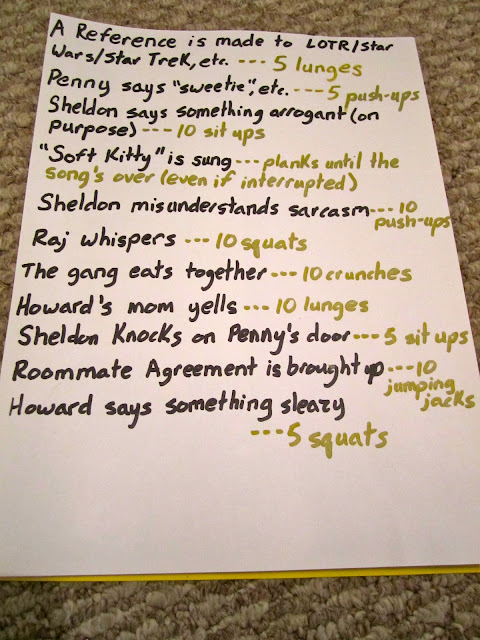 A Reference is made to LOTR/Star
Wars/Star Trek, etc. --- 5 lunges
Penny says "sweetie", etc. ---- 5 push-ups
Sheldon says something arrogant (on
purpose) ---- 10 sit ups
"Soft Kitty" is sung --- planks until the
song's over (even if interrupted)
Sheldon misunderstands sarcasm --- 10
push-ups
Raj whispers --- 10 squats
The gang eats together --- 10 crunches
Howard's mom yells --- 10 lunges
Sheldon Knocks on Penny's door --- 5 sit ups
Roommate Agreement is brought up --- 10
jumping
jacks
Howard says something sleazy
--- 5 squats